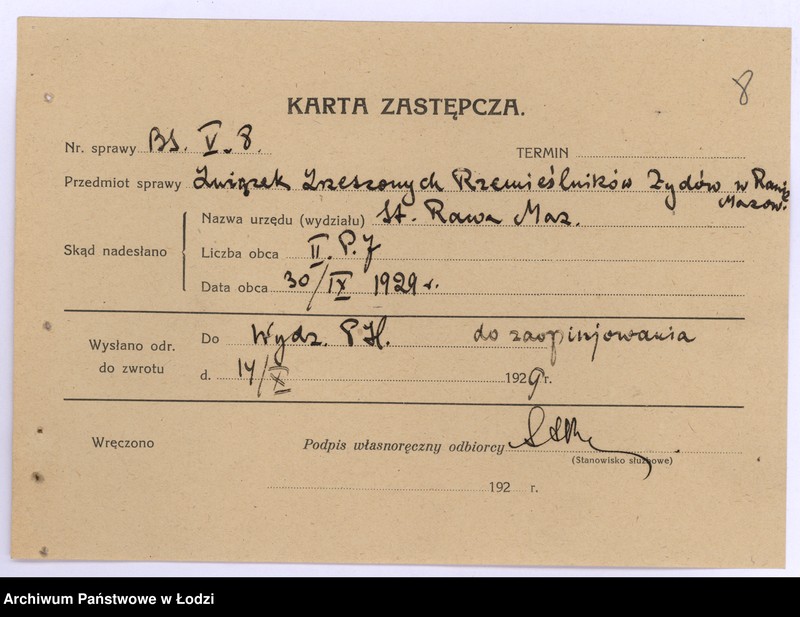 8
KARTA ZASTĘPCZA.
Nr. sprawy BS. V. 8.
TERMIN
Przedmiot sprawy Związek Zrzeszonych Rzemieślników Żydów w Rawie
Mazow.
Skąd nadesłano
Nazwa urzędu (wydziału) St. Rawa Maz.
Liczba obca II. P. 7
Data obca 30/IX 1929 r.
Wysłano odr. do zwrotu
Do Wydz. P.H. do zaopinjowania
d. 14/X 1929 r.
Wręczono
Podpis własnoręczny odbiorcy
(Stanowisko służbowe)
192 r.
Archiwum Państwowe w Łodzi